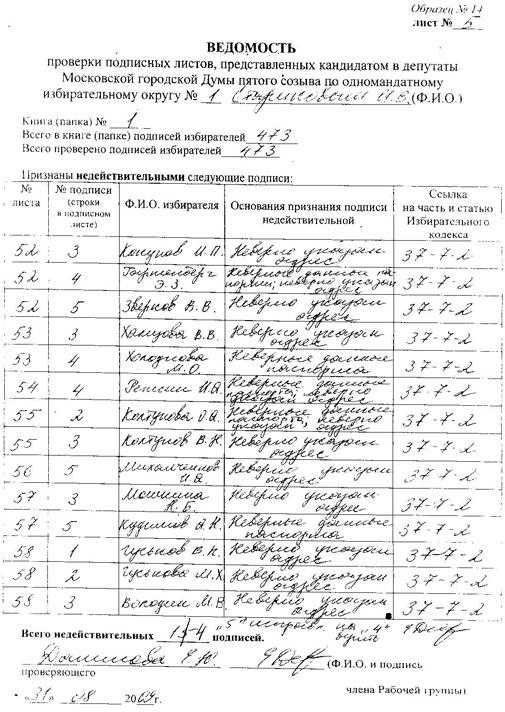 Образец № 14
лист № 5
ВЕДОМОСТЬ
проверки подписных листов, представленных кандидатом в депутаты
Московской городской Думы пятого созыва по одномандатному
избирательному округу № 1 И.В. (Ф.И.О.)
Книга (папка) № 1
Всего в книге (папке) подписей избирателей 473
Всего проверено подписей избирателей 473
Признаны недействительными следующие подписи:
№ листа № подписи (строки в подписном листе) Ф.И.О. избирателя Основания признания подписи недействительной Ссылка на часть и статью Избирательного кодекса
52 3 И.П. Неверно указан адрес 37-7-2
52 4 Э.З. Неверные данные паспорта, неверно указан адрес 37-7-2
52 5 Зверков В.В. Неверно указан адрес 37-7-2
53 3 Ханцова В.В. Неверно указан адрес 37-7-2
53 4 М.О. Неверные данные паспорта 37-7-2
54 4 Репкин Неверные данные паспорта, неверно указан адрес 37-7-2
55 2 Колтунова О.А. Неверные данные паспорта, неверно указан адрес 37-7-2
55 3 Колтунов В.Н. Неверно указан адрес 37-7-2
56 5 Неверно указан адрес 37-7-2
57 3 Н.Б. Неверно указан адрес 37-7-2
57 5 Кудимов Неверные данные паспорта 37-7-2
58 1 Гуськов В.Н. Неверно указан адрес 37-7-2
58 2 Гуськова М.Х. Неверно указан адрес 37-7-2
58 3 Володин М.В. Неверно указан адрес 37-7-2
Всего недействительных подписей. "5" на "4"
(Ф.И.О. и подпись
проверяющего члена Рабочей группы)
«31» 08 2009г.